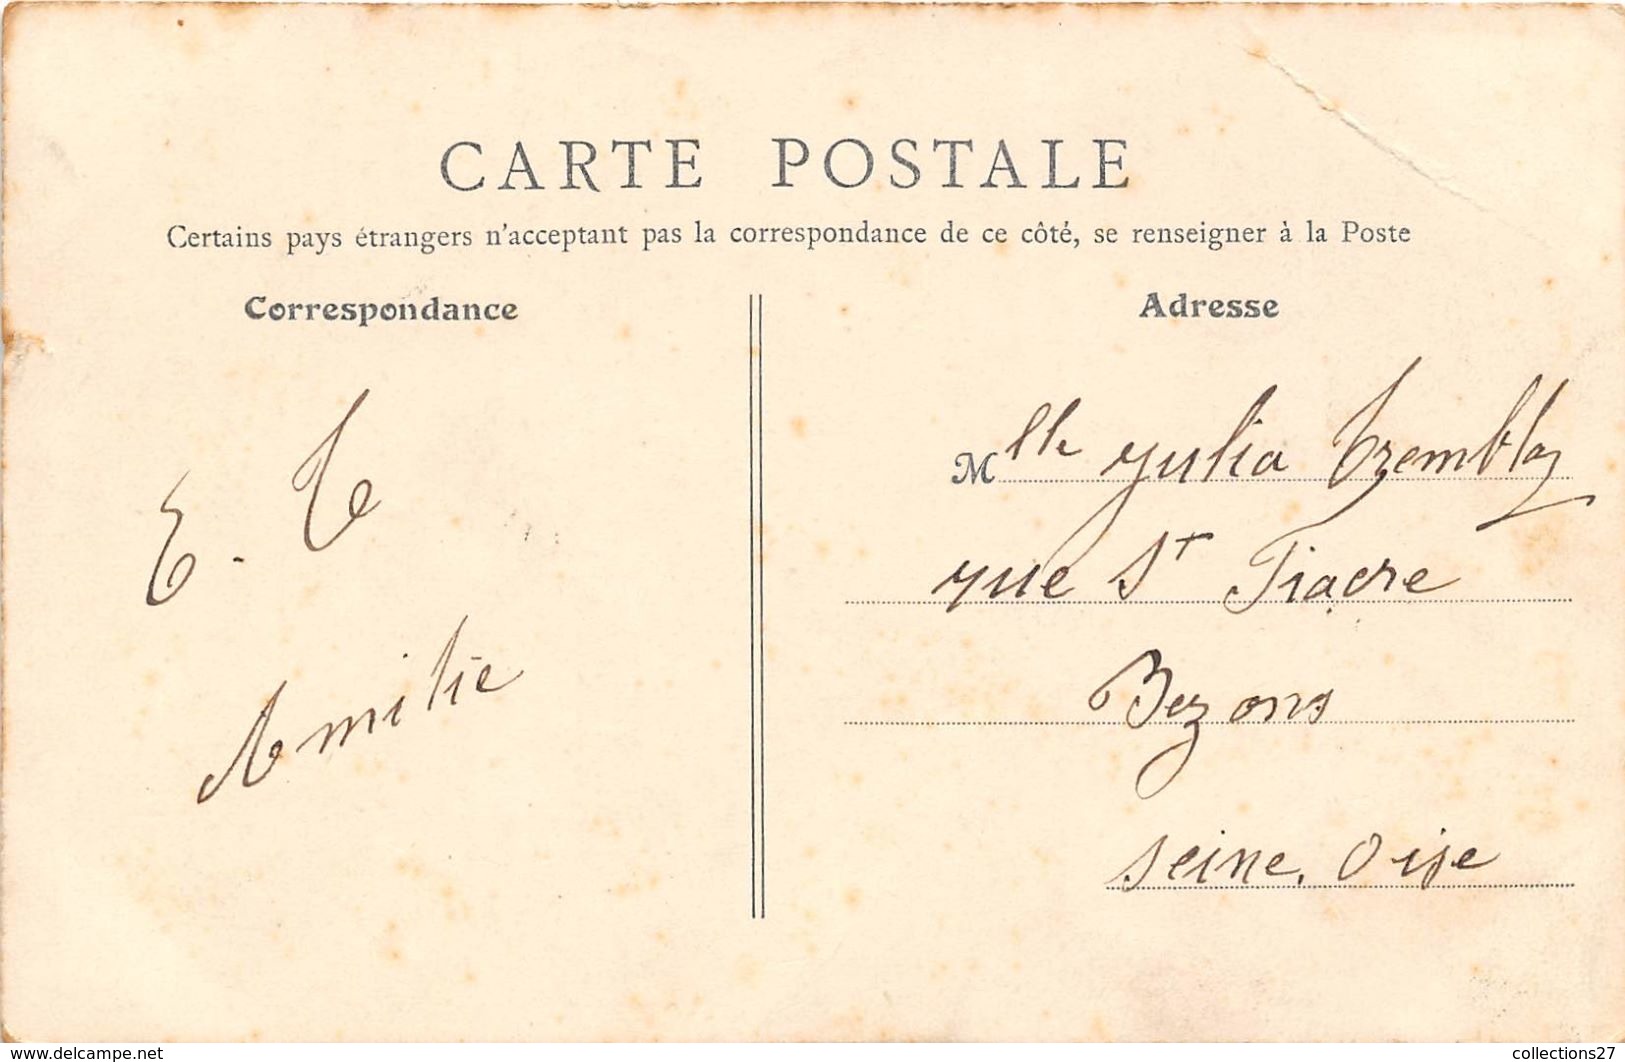 CARTE POSTALE
Certains pays étrangers n'acceptant pas la correspondance de ce côté, se renseigner à la Poste
Correspondance
E. T
Amitié
Adresse
Mlle Julia Tremblay
rue St Fiacre
Bezons
Seine. Oise
www.delcampe.net
collections27